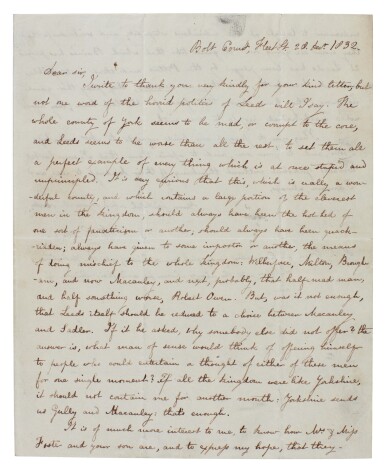 Bolt Court, Fleet St. 2d. Decr. 1832.
Dear sir,
I write to thank you very kindly for your kind letter; but
not one word of the horrid politics of Leeds will I say. The
whole county of York seems to be mad, or corrupt to the core,
and Leeds seems to be worse than all the rest, to set them all
a perfect example of every thing which is at once stupid and
unprincipled. It is very curious that this, which is really a won-
derful county, and which contains a large portion of the cleverest
men in the kingdom, should always have been the hot bed of
one sort of fanaticism or another, should always have been quack-
ridden; always have given to some impostor or another, the means
of doing mischief to the whole kingdom; Wilberforce, Milton, Brough-
am, and now Macauley, and next, probably, that half-mad man,
and half something worse, Robert Owen. But, was it not enough,
that Leeds itself should be reduced to a choice between Macauley
and Sadler. If it be asked, why somebody else did not offer, the
answer is, what man of sense would think of offering himself
to people who could entertain a thought of either of these men
for one single moment? If all the kingdom were like Yorkshire,
it should not contain me for another month. Yorkshire sends
us Gully and Macauley: that's enough.
It is of much more interest to me, to know how Mrs. & Miss
Foster and your son are, and to express my hope, that they